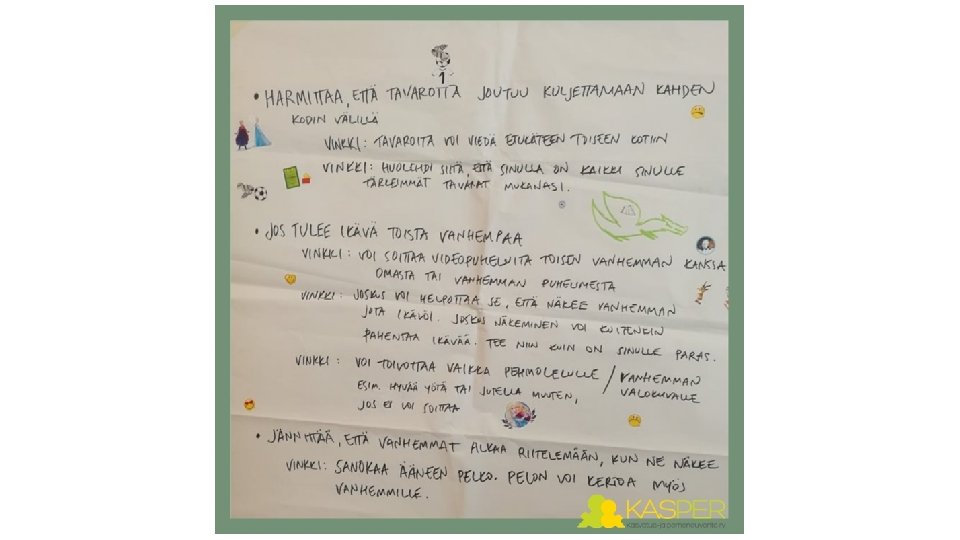 1
• HARMITTAA, ETTÄ TAVAROITA JOUTUU KULJETTAMAAN KAHDEN
KODIN VÄLILLÄ
VINKKI: TAVAROITA VOI VIEDÄ ETUKÄTEEN TOISEEN KOTIIN
VINKKI: HUOLEHDI SIITÄ, ETTÄ SINULLA ON KAIKKI SINULLE
TÄRKEIMMÄT TAVARAT MUKANASI.
• JOS TULEE IKÄVÄ TOISTA VANHEMPAA
VINKKI: VOI SOITTAA VIDEOPUHELUITA TOISEN VANHEMMAN KANSSA
OMASTA TAI VANHEMMAN PUHELIMESTA
VINKKI: JOSKUS VOI HELPOTTAA SE, ETTÄ NÄKEE VANHEMMAN
JOTA IKÄVÖI. JOSKUS NÄKEMINEN VOI KUITENKIN
PAHENTAA IKÄVÄÄ. TEE NIIN KUIN ON SINULLE PARAS.
VINKKI: VOI TOIVOTTAA VAIKKA PEHMOLELULLE / VANHEMMAN
VALOKUVALLE
ESIM. HYVÄÄ YÖTÄ TAI JUTELLA MUUTEN,
JOS EI VOI SOITTAA
• JÄNNITTÄÄ, ETTÄ VANHEMMAT ALKAA RIITELEMÄÄN, KUN NE NÄKEE
VINKKI: SANOKAA ÄÄNEEN PELKO. PELON VOI KERTOA MYÖS
VANHEMMILLE.
KASPER
Kasvatus- ja perheneuvonta ry